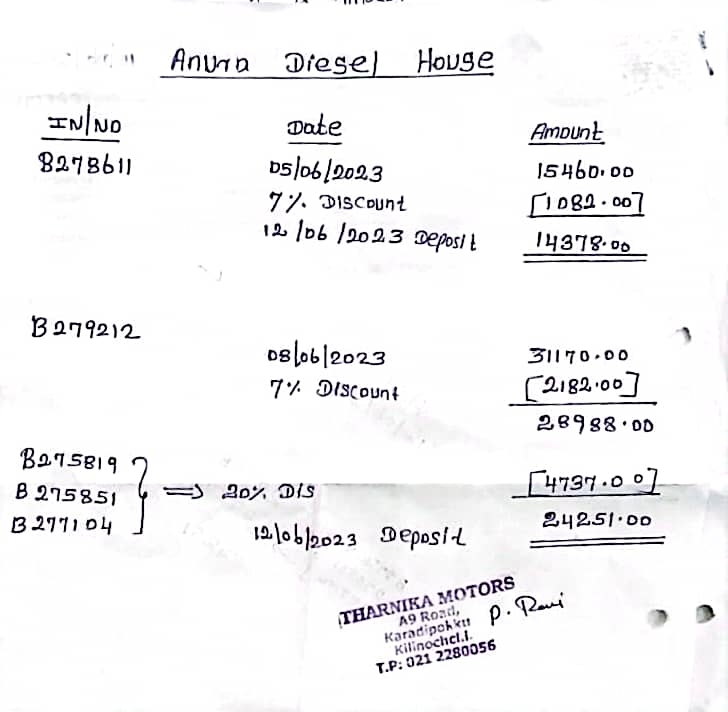 Anura Diesel House
IN/NO Date Amount
B278611 05/06/2023 15460.00
7% Discount [1082.00]
12/06/2023 Deposit 14378.00
B279212
08/06/2023 31170.00
7% Discount [2182.00]
28988.00
B275819
B275851 => 20% Dis [4737.00]
B277104
12/06/2023 Deposit 24251.00
THARNIKA MOTORS
A9 Road,
Karadipokku
Kilinochci.
T.P: 021 2280056
P. Ravi